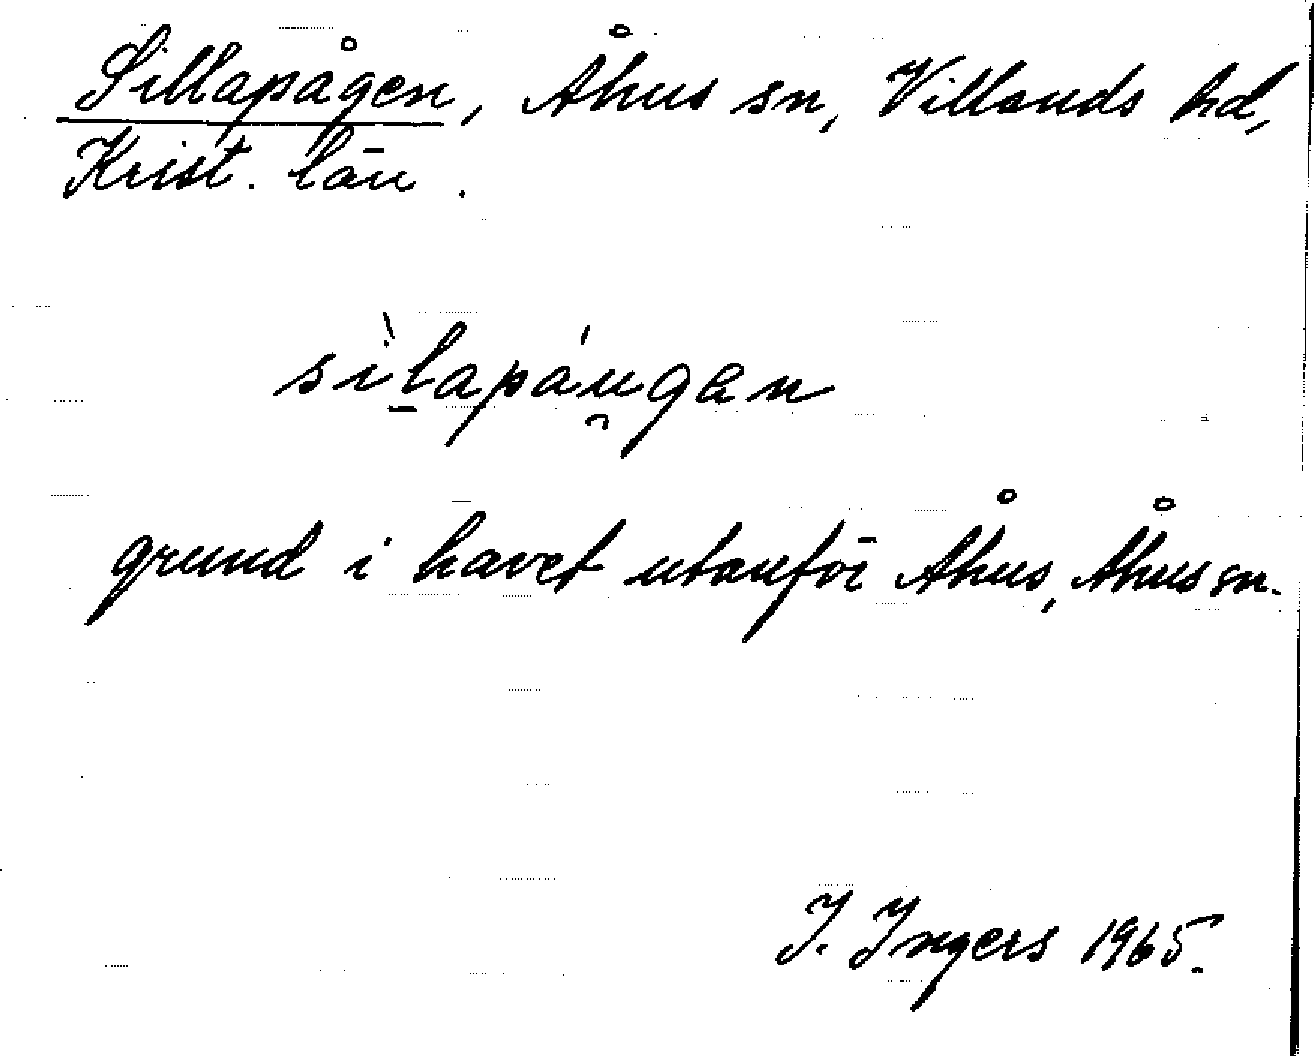 Sillapågen, Åhus sn, Villands hd,
Krist. län.
sìl̠apáu̯gən
grund i havet utanför Åhus, Åhus sn.
I. Ingers 1965.